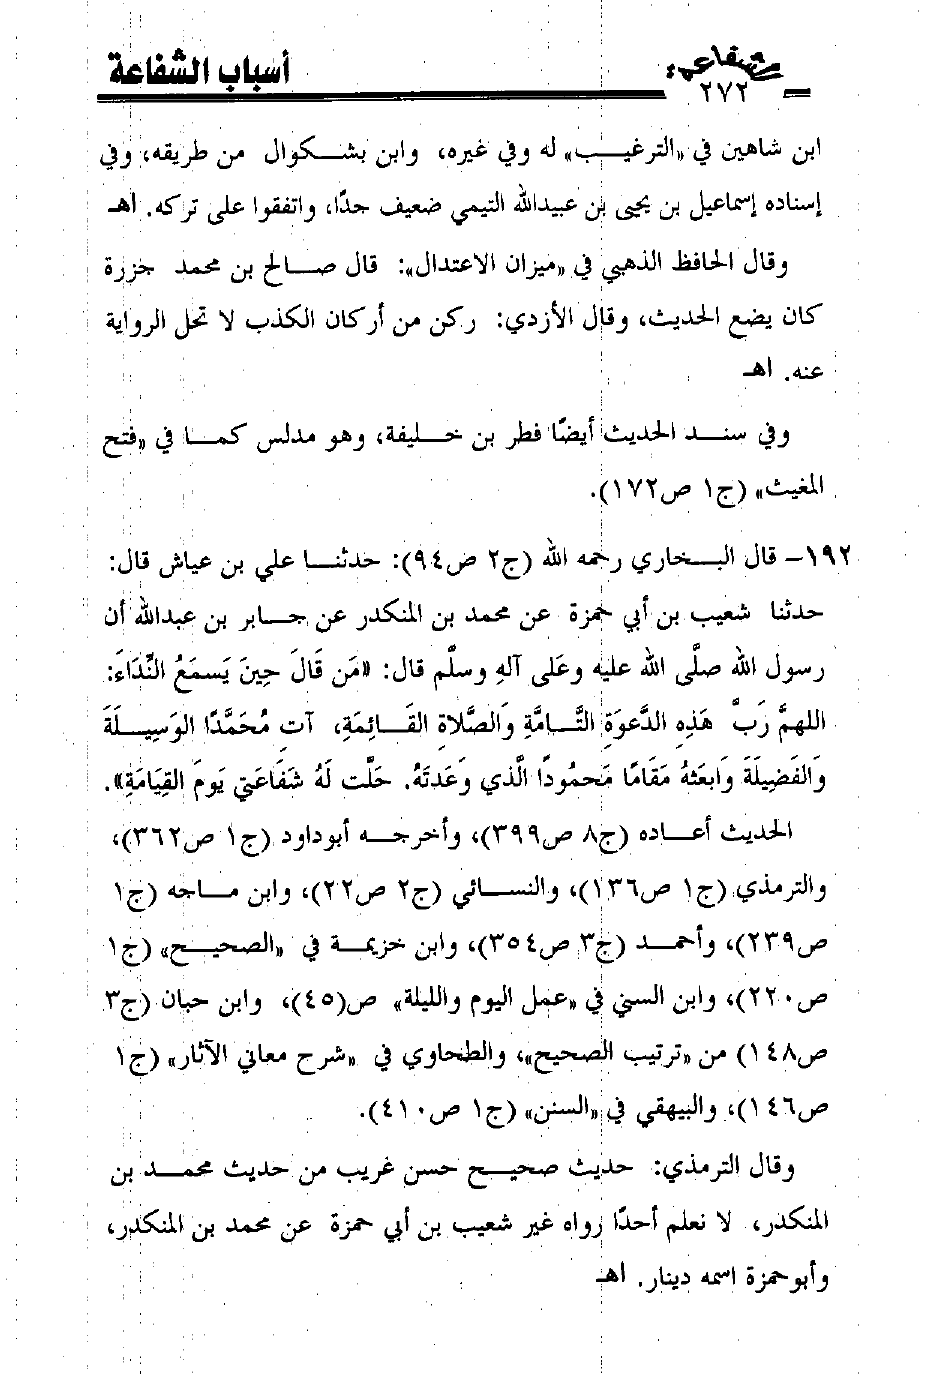 الشفاعة
٢٧٢
أسباب الشفاعة
ابن شاهين في «الترغيب» له وفي غيره، وابن بشكوال من طريقه، وفي
إسناده إسماعيل بن يحيى بن عبيدالله التيمي ضعيف جدًّا، واتفقوا على تركه. اهـ
وقال الحافظ الذهبي في «ميزان الاعتدال»: قال صالح بن محمد جزرة
كان يضع الحديث، وقال الأزدي: ركن من أركان الكذب لا تحل الرواية
عنه. اهـ
وفي سند الحديث أيضًا فطر بن خليفة، وهو مدلس كما في «فتح
المغيث» (ج١ ص١٧٢).
١٩٢- قال البخاري رحمه الله (ج٢ ص٩٤): حدثنا علي بن عياش قال:
حدثنا شعيب بن أبي حمزة عن محمد بن المنكدر عن جابر بن عبدالله أن
رسول الله صلَّى الله عليه وعَلى آلهِ وسلَّم قال: «مَن قَالَ حِينَ يَسمَعُ النِّدَاءَ:
اللهمَّ رَبَّ هَذِهِ الدَّعوَةِ التَّامَّةِ وَالصَّلاةِ القَائِمَةِ، آتِ مُحَمَّدًا الوَسِيلَةَ
وَالفَضِيلَةَ وَابعَثهُ مَقَامًا مَحمُودًا الَّذي وَعَدتَهُ. حَلَّت لَهُ شَفَاعَتي يَومَ القِيَامَةِ».
الحديث أعاده (ج٨ ص٣٩٩)، وأخرجه أبوداود (ج١ ص٣٦٢)،
والترمذي (ج١ ص١٣٦)، والنسائي (ج٢ ص٢٢)، وابن ماجه (ج١
ص٢٣٩)، وأحمد (ج٣ ص٣٥٤)، وابن خزيمة في «الصحيح» (ج١
ص٢٢٠)، وابن السني في «عمل اليوم والليلة» ص(٤٥)، وابن حبان (ج٣
ص١٤٨) من «ترتيب الصحيح»، والطحاوي في «شرح معاني الآثار» (ج١
ص١٤٦)، والبيهقي في «السنن» (ج١ ص٤١٠).
وقال الترمذي: حديث صحيح حسن غريب من حديث محمد بن
المنكدر، لا نعلم أحدًا رواه غير شعيب بن أبي حمزة عن محمد بن المنكدر،
وأبوحمزة اسمه دينار. اهـ